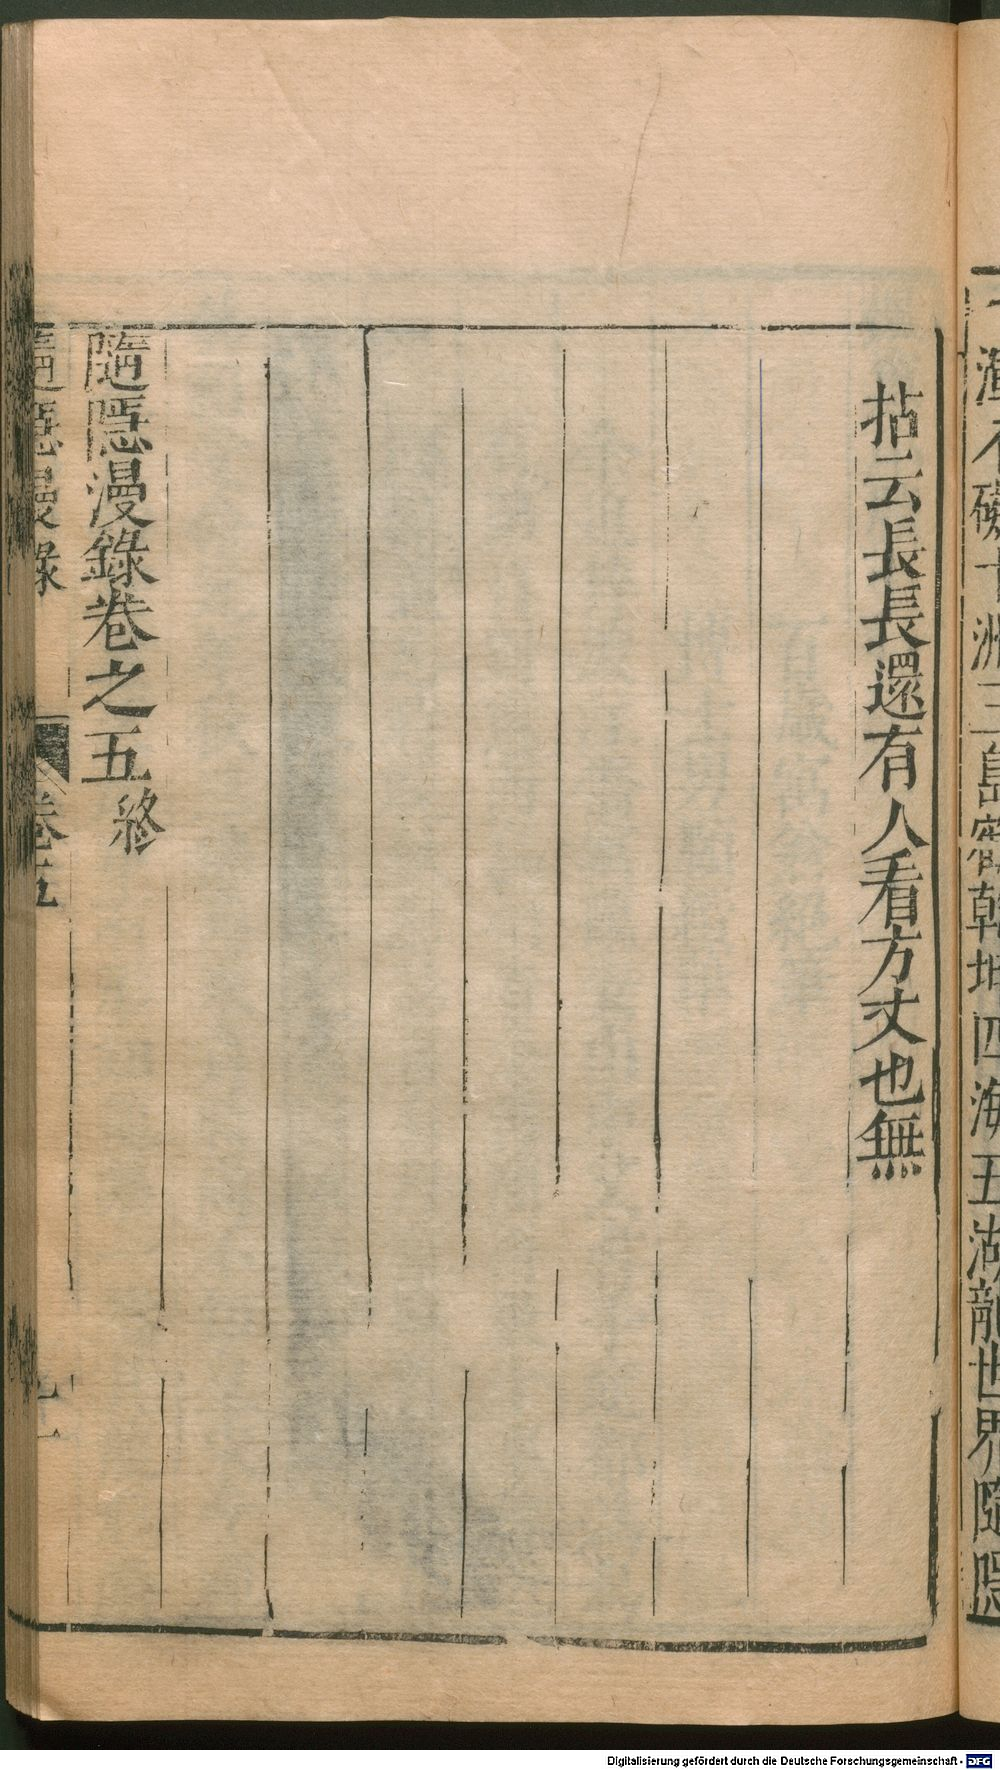 洲三島寄乾坤四海五湖龍世界隨隱
拈云長長還有人看方丈也無
隨隱漫錄卷之五終
隨隱漫錄
卷五
Digitalisierung gefördert durch die Deutsche Forschungsgemeinschaft - DFG